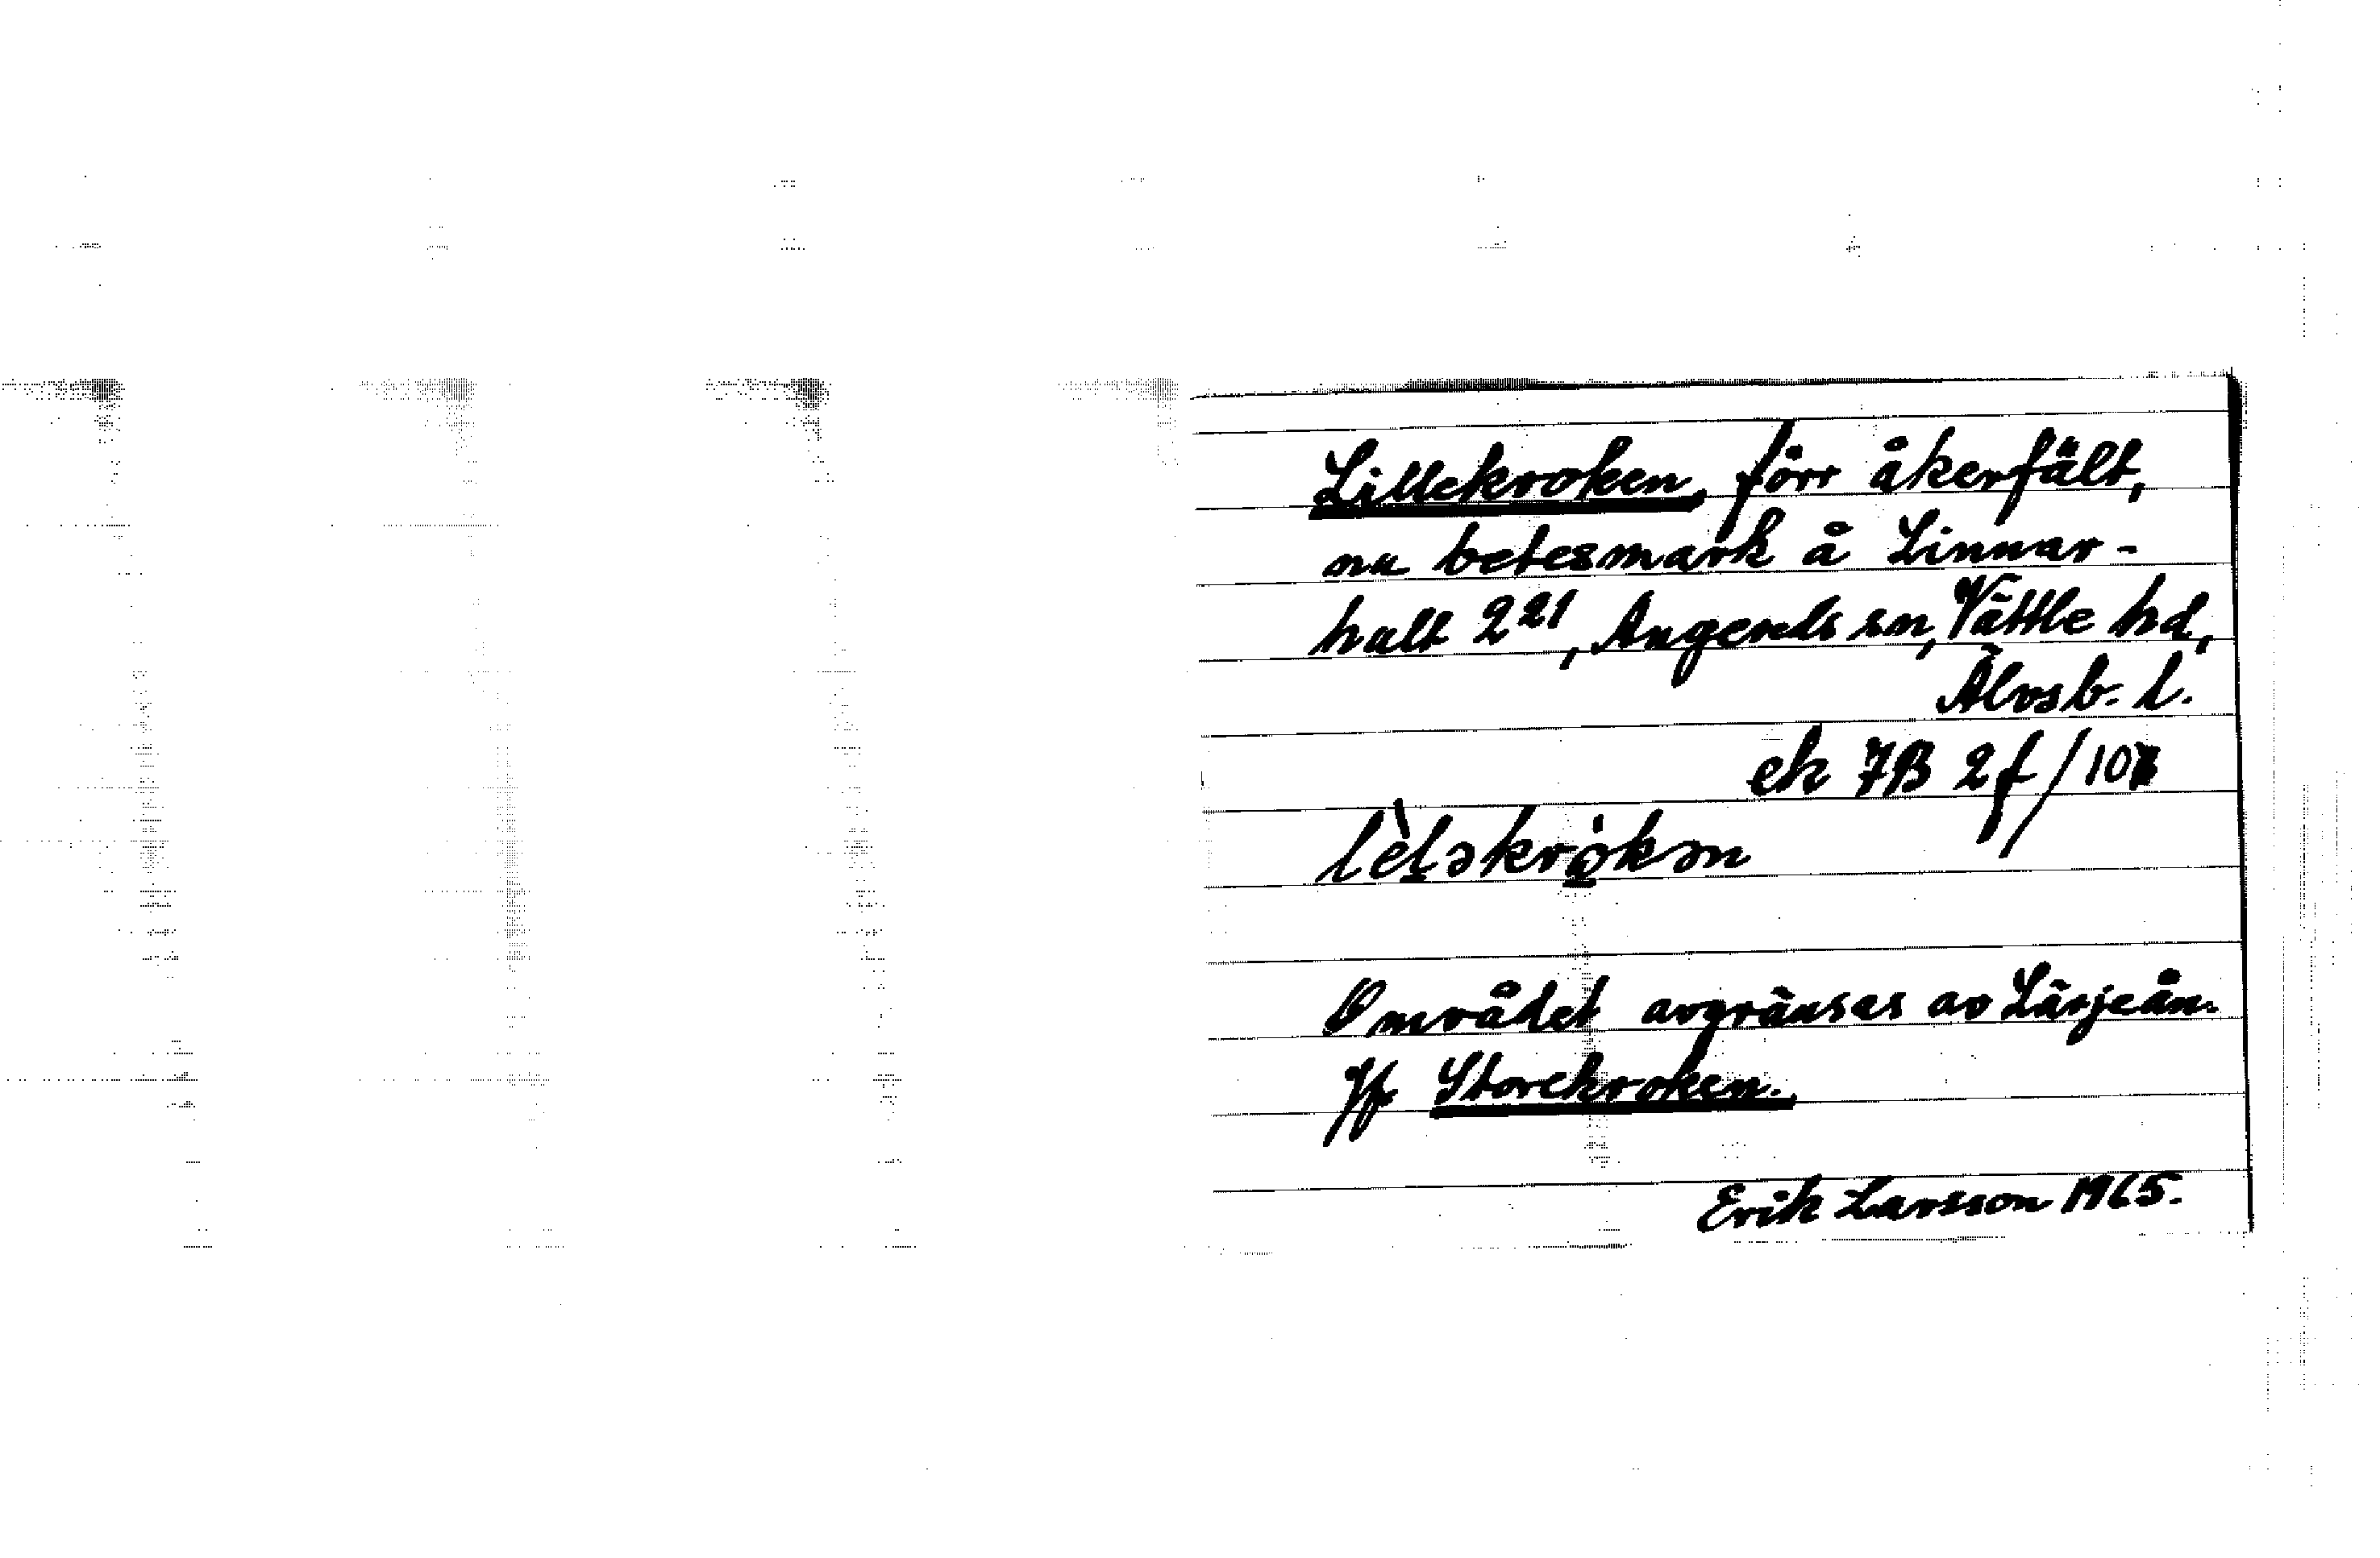 Lillekroken, förr åkerfält,
nu betesmark å Linnar-
hult 2²¹, Angereds sn, Vättle hd,
Älvsb. l.
ek 7B 2f/
lèləkrokən
Området avgränsas av Lärjeån.
Jfr Storekroken.
Erik Larsson 1965.